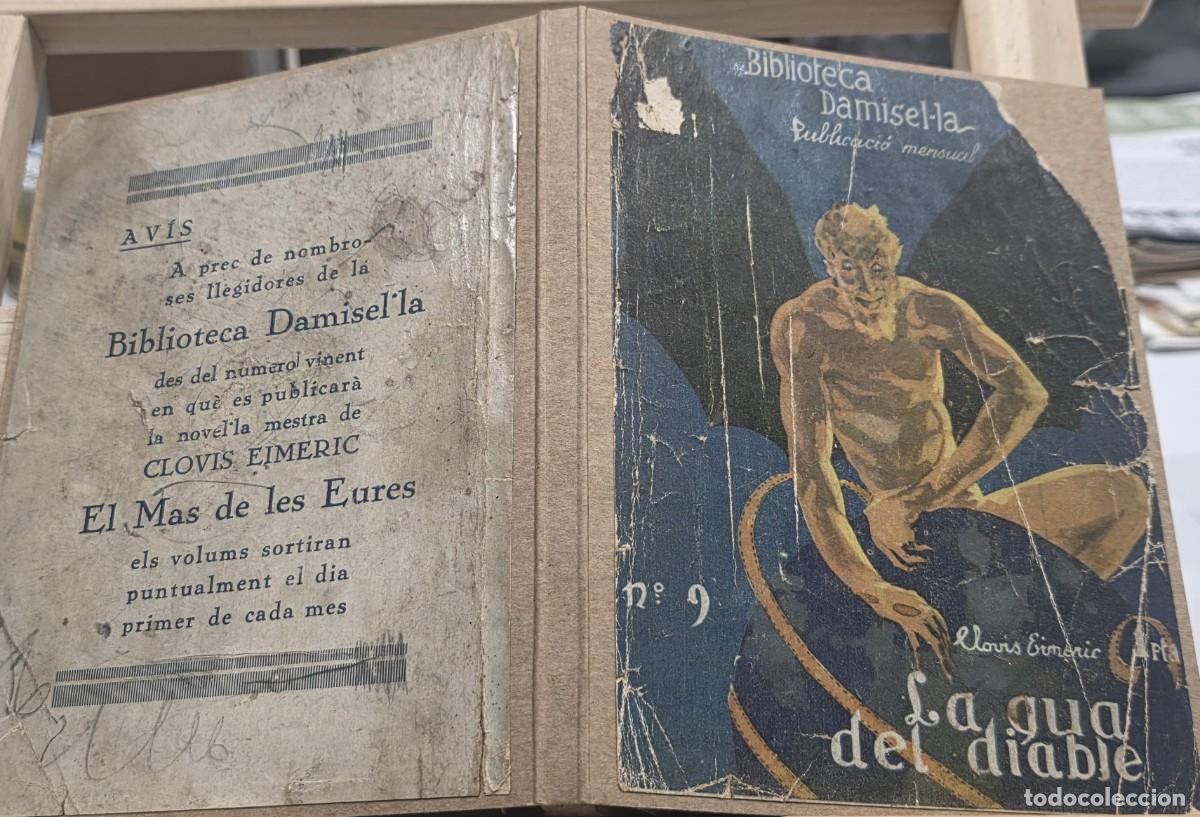 AVÍS
A prec de nombro-
ses llegidores de la
Biblioteca Damisel·la
des del numero vinent
en què es publicarà
la novel·la mestra de
CLOVIS EIMERIC
El Mas de les Eures
els volums sortiran
puntualment el dia
primer de cada mes
Biblioteca
Damisel·la
Publicació mensual
nº 9
Clovis Eimeric
1 Pta
La qua
del diable
todocoleccion